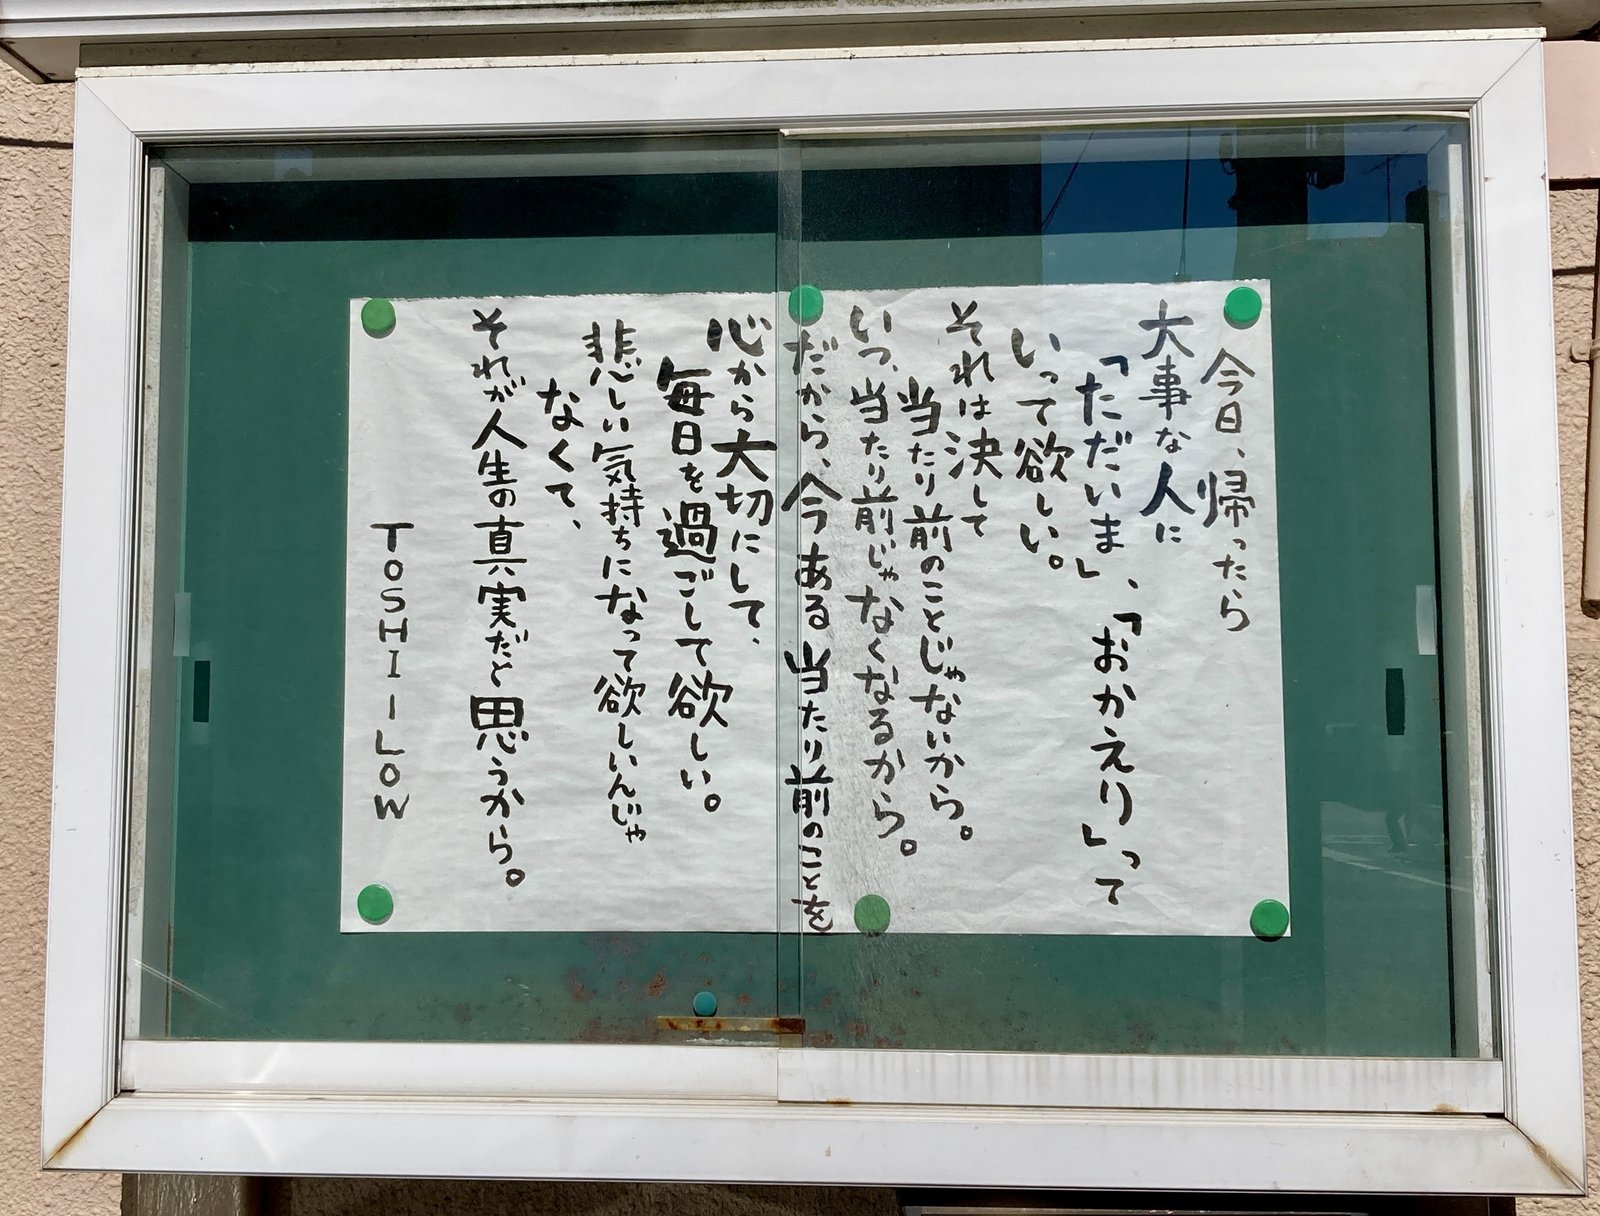 今日、帰ったら
大事な人に
「ただいま」、「おかえり」って
いって欲しい。
それは決して
当たり前のことじゃないから。
いつ、当たり前じゃなくなるから。
だから、今ある当たり前のことを
心から大切にして、
毎日を過ごして欲しい。
悲しい気持ちになって欲しいんじゃ
なくて、
それが人生の真実だと思うから。
TOSHI-LOW